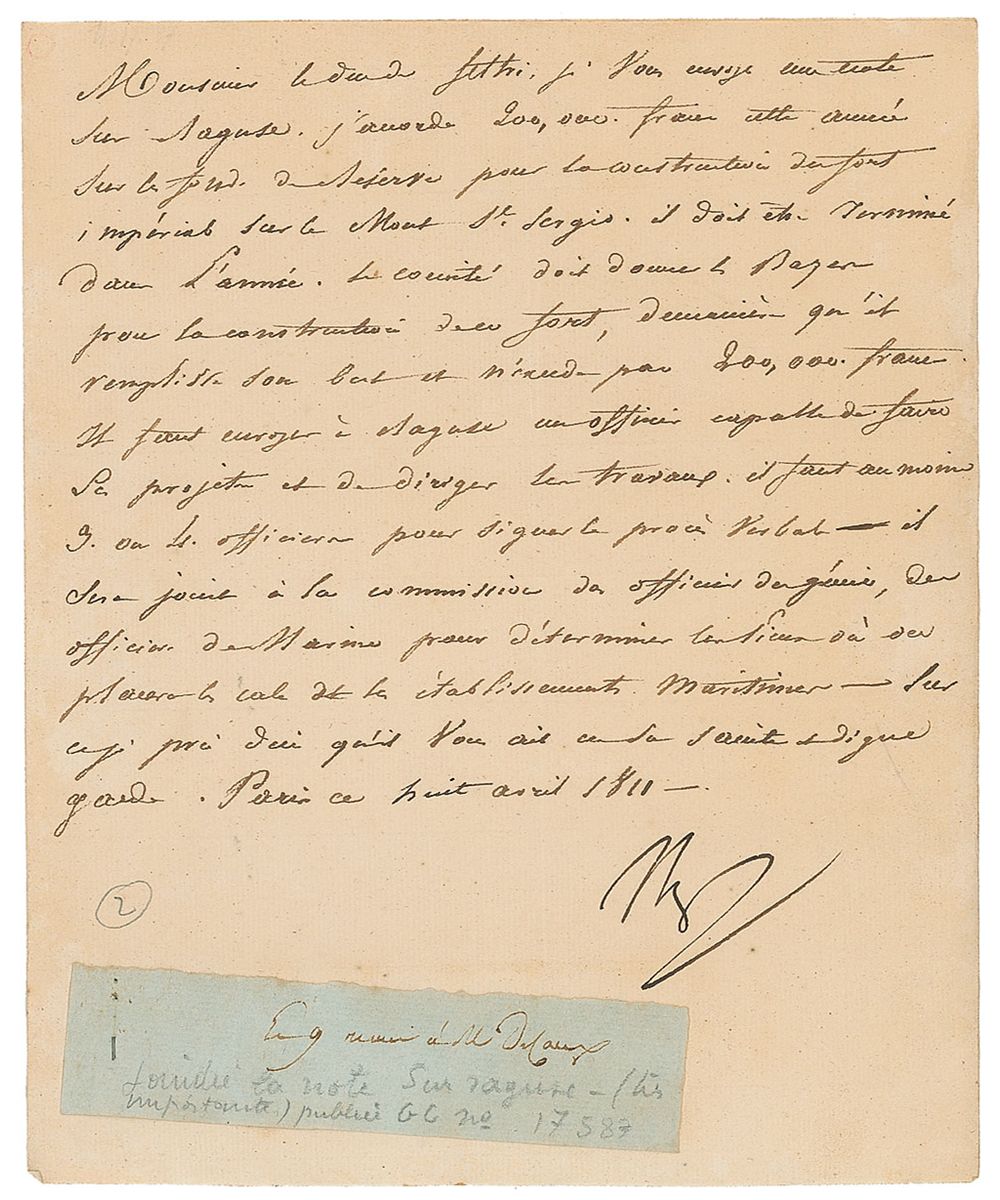 Monsieur le duc de feltre, je Vous envoye une note
sur Raguse. j'accorde 200,000. francs cette année
sur les fonds de Réserve pour la construction du fort
impérial sur le Mont St. Sergio. il doit être Terminé
dans L'année. le comité doit donner les Bases
pour la construction de ce fort, de manière qu'il
remplisse son but et n'excède pas 200,000. francs.
Il faut envoyer à Raguse un officier capable de faire
les projets et de diriger les travaux. il faut au moins
3. ou 4. officiers pour signer le procès Verbal — il
sera joint à la commission des officiers du génie, des
officiers de Marine pour déterminer les lieux où on
placera la cale et les établissements Maritimes — Sur
ce je prie dieu qu'il Vous ait en Sa Sainte et digne
garde. Paris ce huit avril 1811 —.
Np
2
Le 9 remis à Mr DeCaux
Joindre la note Sur raguse - (très
importante) publiée CG no 17 587